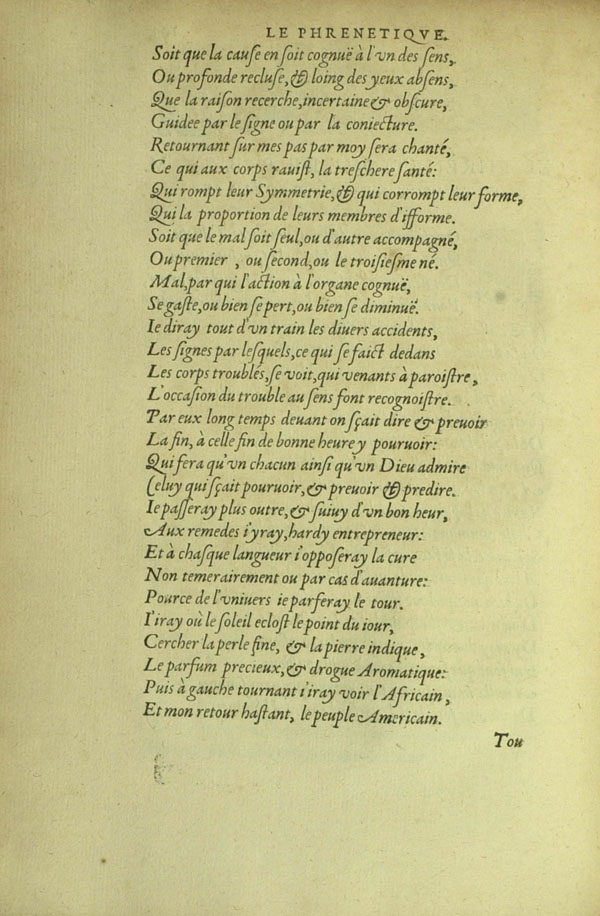 LE PHRENETIQVE.
Soit que la cauſe en ſoit cognuë à l'vn des ſens,
Ou profonde recluſe, & loing des yeux abſens,
Que la raiſon recerche, incertaine & obſcure,
Guidee par le ſigne ou par la coniecture.
Retournant ſur mes pas par moy ſera chanté,
Ce qui aux corps rauiſt, la treſchere ſanté:
Qui rompt leur Symmetrie, & qui corrompt leur forme,
Qui la proportion de leurs membres d'ifforme.
Soit que le mal ſoit ſeul, ou d'autre accompagné,
Ou premier , ou ſecond, ou le troiſieſme né.
Mal, par qui l'action à l'organe cognuë,
Se gaſte, ou bien ſe pert, ou bien ſe diminuë.
Ie diray tout d'vn train les diuers accidents,
Les ſignes par leſquels, ce qui ſe faict dedans
Les corps troublés, ſe voit, qui venants à paroiſtre,
L'occaſion du trouble au ſens font recognoiſtre.
Par eux long temps deuant on ſçait dire & preuoir
La fin, à celle fin de bonne heure y pouruoir:
Qui fera qu'vn chacun ainſi qu'vn Dieu admire
Celuy qui ſçait pouruoir, & preuoir & predire.
Ie paſſeray plus outre, & ſuiuy d'vn bon heur,
Aux remedes i'yray, hardy entrepreneur:
Et à chaſque langueur i'oppoſeray la cure
Non temerairement ou par cas d'auanture:
Pource de l'vniuers ie parferay le tour.
I'iray où le ſoleil ecloſt le point du iour,
Cercher la perle fine, & la pierre indique,
Le parfum precieux, & drogue Aromatique:
Puis à gauche tournant i'iray voir l'Africain,
Et mon retour haſtant, le peuple Americain.
Tou